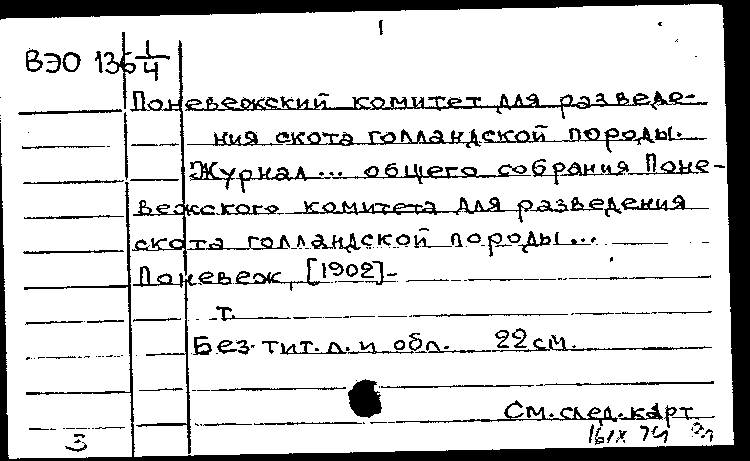 1
ВЭО 136 1/4
Поневежский комитет для разведе-
ния скота голландской породы.
Журнал... общего собрания Поне-
вежского комитета для разведения
скота голландской породы...
Поневеж, [1902]-
т.
Без тит. л. и обл. 22 см.
См. след. карт
3
16/IX 74